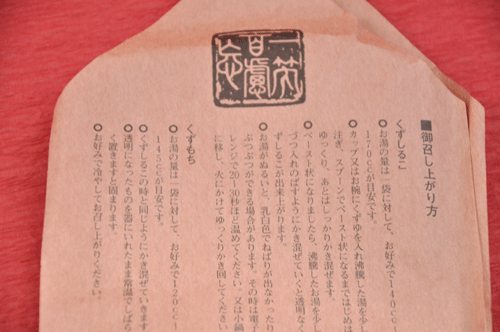 一笑百慮忘
■御召し上がり方
くずしるこ
○お湯の量は一袋に対して、お好みで140cc
170ccが目安です。
○カップ又はお椀にくずゆを入れ沸騰した湯を少し
注ぎ、スプーンでペースト状になるまではじめ
ゆっくり、あとはしっかりかき混ぜます。
○ペースト状になりましたら、沸騰したお湯を少
づつ入れのばすようにかき混ぜていくと透明なく
ずしるこが出来上がります。
○お湯がぬるいと、乳白色でねばりが出なかったり
ぶつぶつができる場合があります。その時は電子
レンジで20~30秒ほど温めてください。又は小鍋
に移し、火にかけてゆっくりかき回してください。
くずもち
○お湯の量は一袋に対して、お好みで120cc
145ccが目安です。
○くずしるこの時と同じようにかき混ぜていきます
○透明になったものを器にいれたまま常温でしばら
く置きますと固まります。
○お好みで冷やしてお召し上がりください。